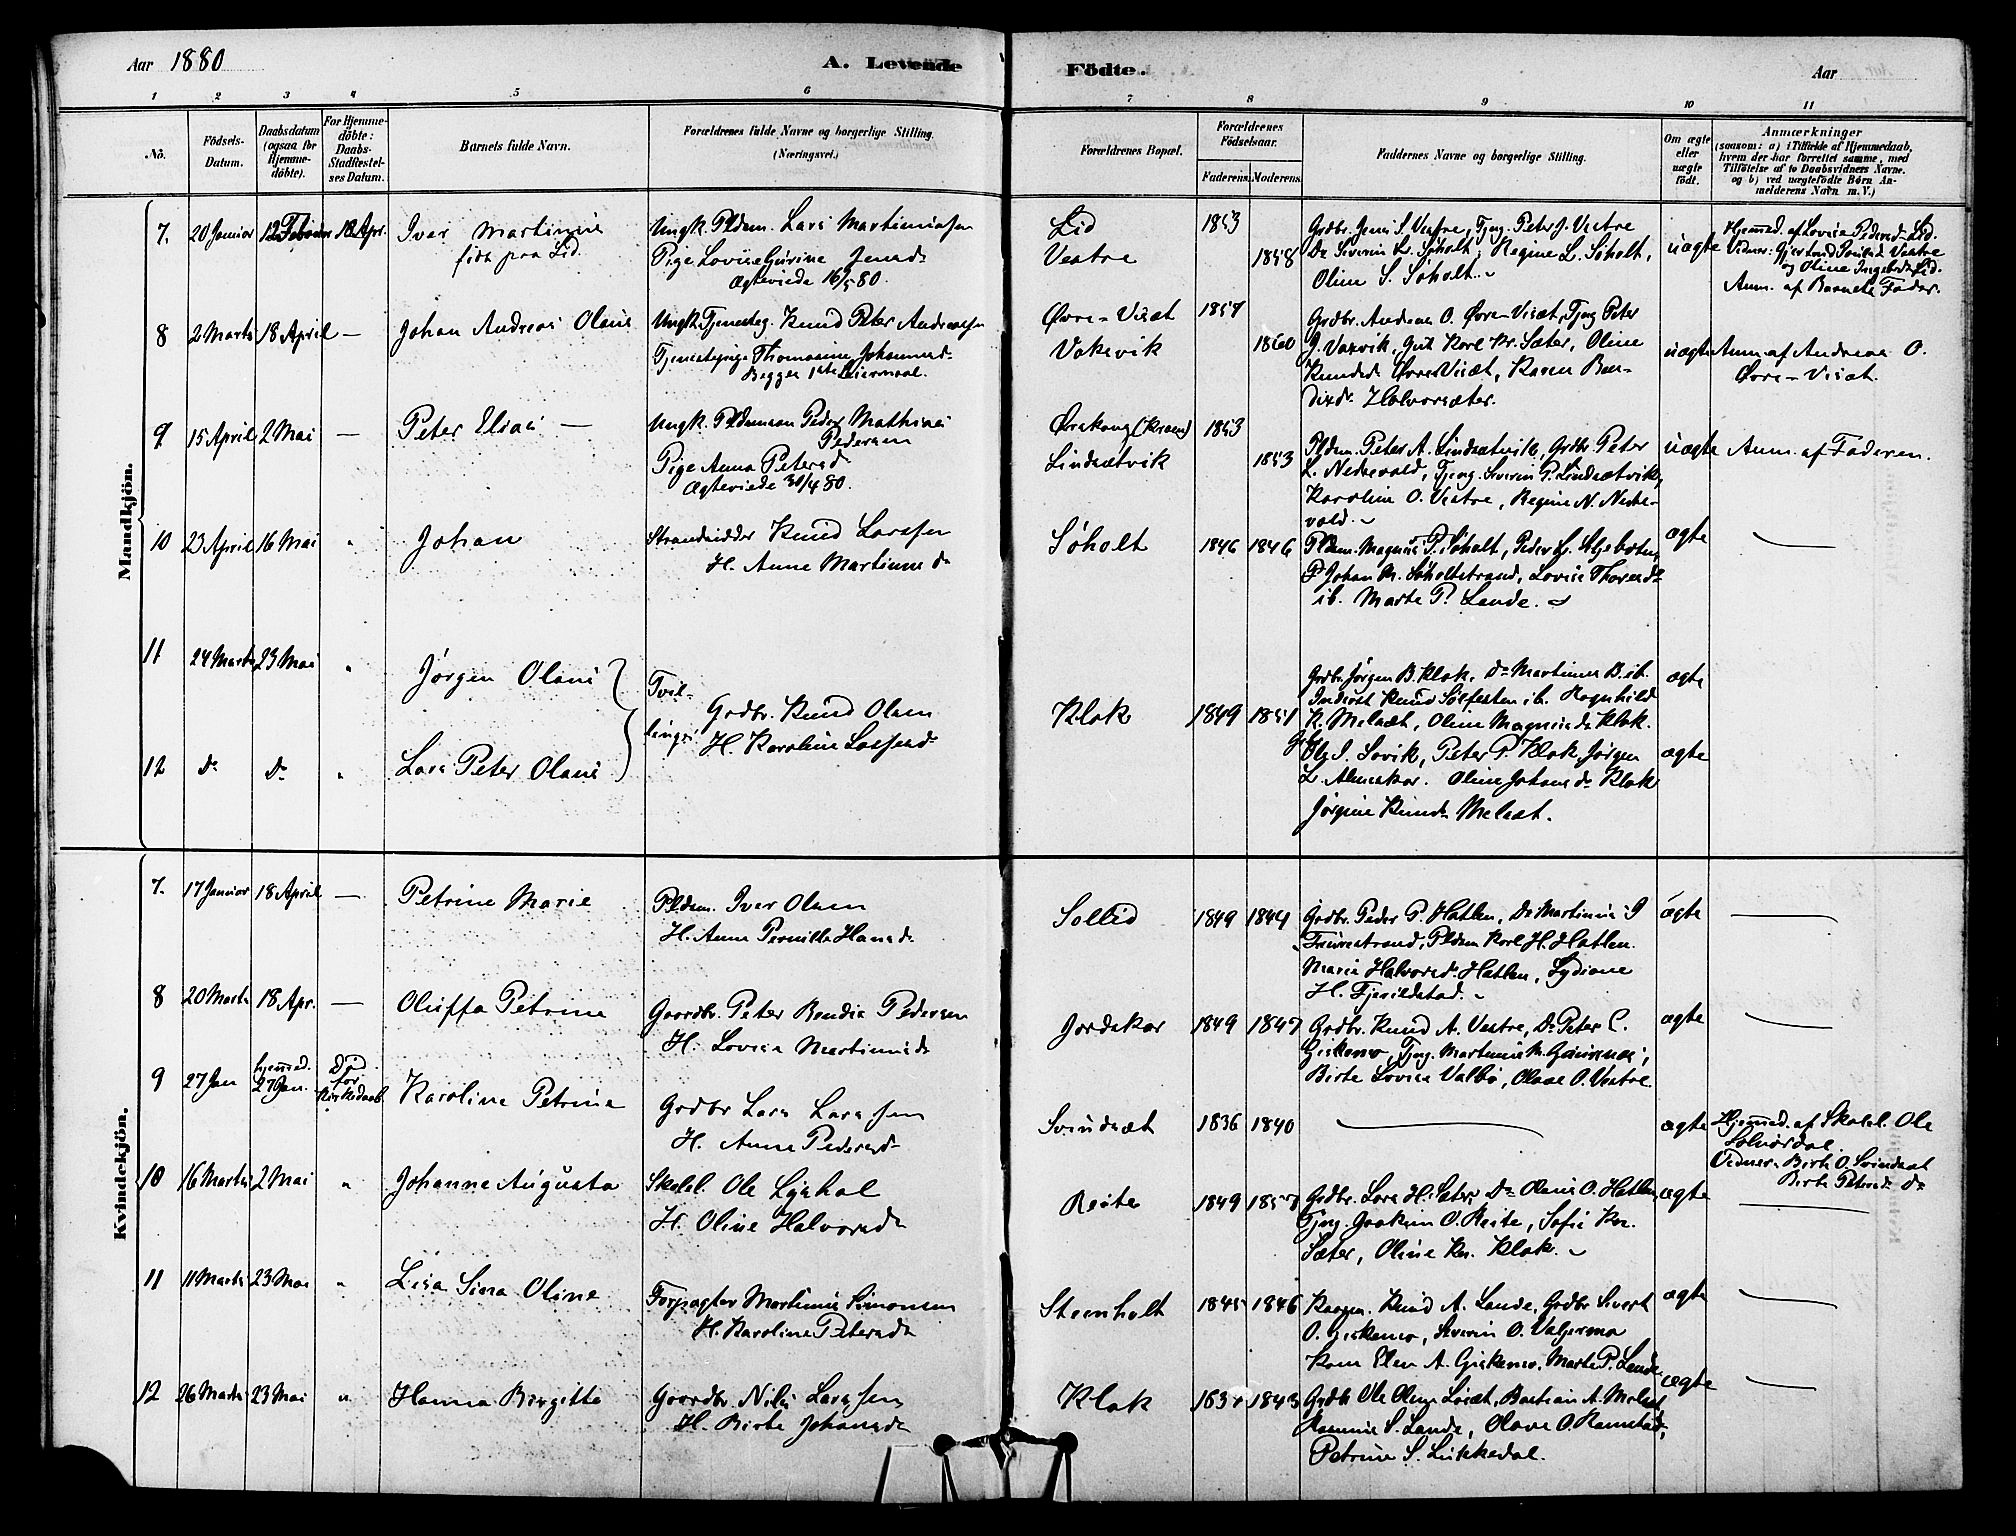 Aar 1880
A. Levende Födte.
Aar
1 2 3 4 5 6 7 8 9 10 11
No.
Födsels-Datum.
Daabsdatum (ogsaa for Hjemme-döbte).
For Hjemme-döbte: Daabs-Stadfæstel-ses Datum.
Barnets fulde Navn.
Forældrenes fulde Navne og borgerlige Stilling.
(Næringsvei.)
Forældrenes Bopæl.
Forældrenes Födselsaar.
Faderens. Moderens.
Faddernes Navne og borgerlige Stilling.
Om ægte eller uægte födt.
Anmærkninger
(saasom: a) i Tilfælde af Hjemmedaab,
hvem der har forrettet samme, med
Tilföielse af to Daabsvidners Navne.
og b) ved uægtefödte Børn An-
melderens Navn m. V.)
Mandkjön.
7. 20 Januar 12 Februar 18 Apr. Iver Martinus
født paa Lid
Ungk. Pldsm. Lars Martinussen
Pige Lovise Gurine Jensd.
Ægteviede 16/5 80.
Lid 1853
Vestre 1858
Grdbr. Jens S. Vestre, Tjng. Peter J. Vestre
Do Severin L. Søholt, Regine L. Søholt,
Oline S. Søholt.
uægte
Hjemmed. af Lovise Pedersd. Lid.
og Oline Lid.
Anm. af Barnets Fader.
8 2 Marts 18 April — Johan Andreas Olaus
Ungk. Tjenesteg. Knud Peter Andreassen
Tjenestepige Thomasine Johannesd.
Begges 1ste Leiermaal.
Øvre-Visæt 1857
Vaksvik 1860
Grdbr. Andreas O. Øvre-Visæt, Tjng Peter
J. Vaxvik, Gut Karl Kr. Sæter, Oline
Knudsd. Øvre Visæt, Karen Ben-
dixd. Halvorsæter.
uægte
Anm. af Andreas O.
Øvre-Visæt.
9 15 April 2 Mai — Peter Elias —
Ungk. Pldsmsøn Peder Mathias
Pedersen
Pige Anna Petersd
Ægteviede 30/4 80.
Ørskoug 1853
Lindsætvik 1853
Pldsm. Peter A. Lindsætvik, Grdbr. Peter
L. Nedrevold, Tjeng. Severin P. Lindsætvik,
Karoline O. Vestre, Regine N. Nedre-
vold.
uægte Anm. af Faderen.
10 23 April 16 Mai " Johan
Strandsidder Knud Larssen
H. Anne Martinusd
Søholt 1846 1846
Pldsm. Magnus P. Søholt, Peder
Johan K. Søholtstrand, Lovise Thoresd.
ib. Marte P. Lande.
ægte
11 24 Marts 23 Mai " Jørgen Olaus
Tvil-
linger
Grdbr. Knud Olsen
H. Karoline Lassesd.
Klok 1849 1851
Grdbr. Jørgen B. Klok, Do Martinus B. ib.
Inderst Knud Sølfesten ib. Ragnhild
K. Melsæt, Oline Magnusd. Klok.
ægte
12 do do " Lars Peter Olaus
Ole I. Løvik, Peter P. Klok, Jørgen
L. Almeskar. Oline Johansd. Klok
Jørgine Knudsd. Melsæt.
ægte
Kvindekjön.
7. 17 Januar 18 April — Petrine Marie
Pldsm. Iver Olsen
H. Anne Pernille Hansd.
Sollid 1849 1844
Grdbr. Peder P. Hatlen, Do Martinus I
Fauskestrand, Pldsm Karl H. Hatlen.
Maria Halvorsd. Hatlen, Lydiane
H. Fjerildstad.
ægte
8 20 Marts 18 Apr. — Oluffa Petrine
Gaardbr. Peter Bendix Pedersen
H. Lovise Martinusd.
Jordskar 1849 1847
Grdbr. Knud A. Vestre, Do Peter C.
Giskemo, Tjng. Martinus M. Gausnæs,
Birte Lovise Valbø, Olave O. Vestre.
ægte
9 27 Jan hjemmed. 27 Jan. Død før Kirkedaab Karoline Petrine
Grdbr Lars Larssen
H. Anne Pedersd.
Svindsæt 1836 1840
ægte
Hjemmed. af Skolel. Ole
Solnørdal
Vidner: Birte O. Svindset
Birte Petersd. do
10 16 Marts 2 Mai " Johanne Augusta
Skolel. Ole Lyshol
H. Oline Halvorsd.
Reite 1849 1857
Grdbr. Lars H. Sæter, Do Olaus O. Hatlen,
Tjng. Joakim O. Reite, Sofie Kn.
Sæter, Oline Kn. Klok.
ægte
11 11 Marts 23 Mai " Lisa Sina Oline
Forpagter Martinus Simonsen
H. Karoline Petersd.
Stenholt 1845 1846
Knud A. Lande, Grdbr Sivert
O. Giskemo, Severin O. Valgermo
Kone Elen A. Giskemo, Marte P. Lande
ægte
12 26 Marts 23 Mai " Hanna Birgitte
Gaardbr. Nils Larssen
H. Birte Johansd
Klok 1843
Grdbr Ole Olsen Bastian A. Melsæt,
S. Lande, Olave O. Ramstad,
Petrine S. Likkedal.
ægte